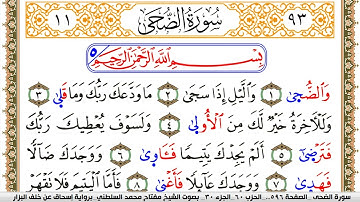 ١١ سُورَةُ الضُّحَىٰ ٩٣
بِسْمِ اللَّهِ الرَّحْمَٰنِ الرَّحِيمِ
وَالضُّحَىٰ ١ وَاللَّيْلِ إِذَا سَجَىٰ ٢ مَا وَدَّعَكَ رَبُّكَ وَمَا قَلَىٰ ٣
وَلَلْآخِرَةُ خَيْرٌ لَّكَ مِنَ الْأُولَىٰ ٤ وَلَسَوْفَ يُعْطِيكَ رَبُّكَ
فَتَرْضَىٰ ٥ أَلَمْ يَجِدْكَ يَتِيمًا فَـَٔاوَىٰ ٦ وَوَجَدَكَ ضَالًّا
فَهَدَىٰ ٧ وَوَجَدَكَ عَآئِلًا فَأَغْنَىٰ ٨ فَأَمَّا الْيَتِيمَ فَلَا تَقْهَرْ
سورة الضحى الصفحة ٥٩٦ الحزب ٦٠ الجزء ٣٠ بصوت الشيخ مفتاح محمد السلطني برواية إسحاق عن خلف البزار